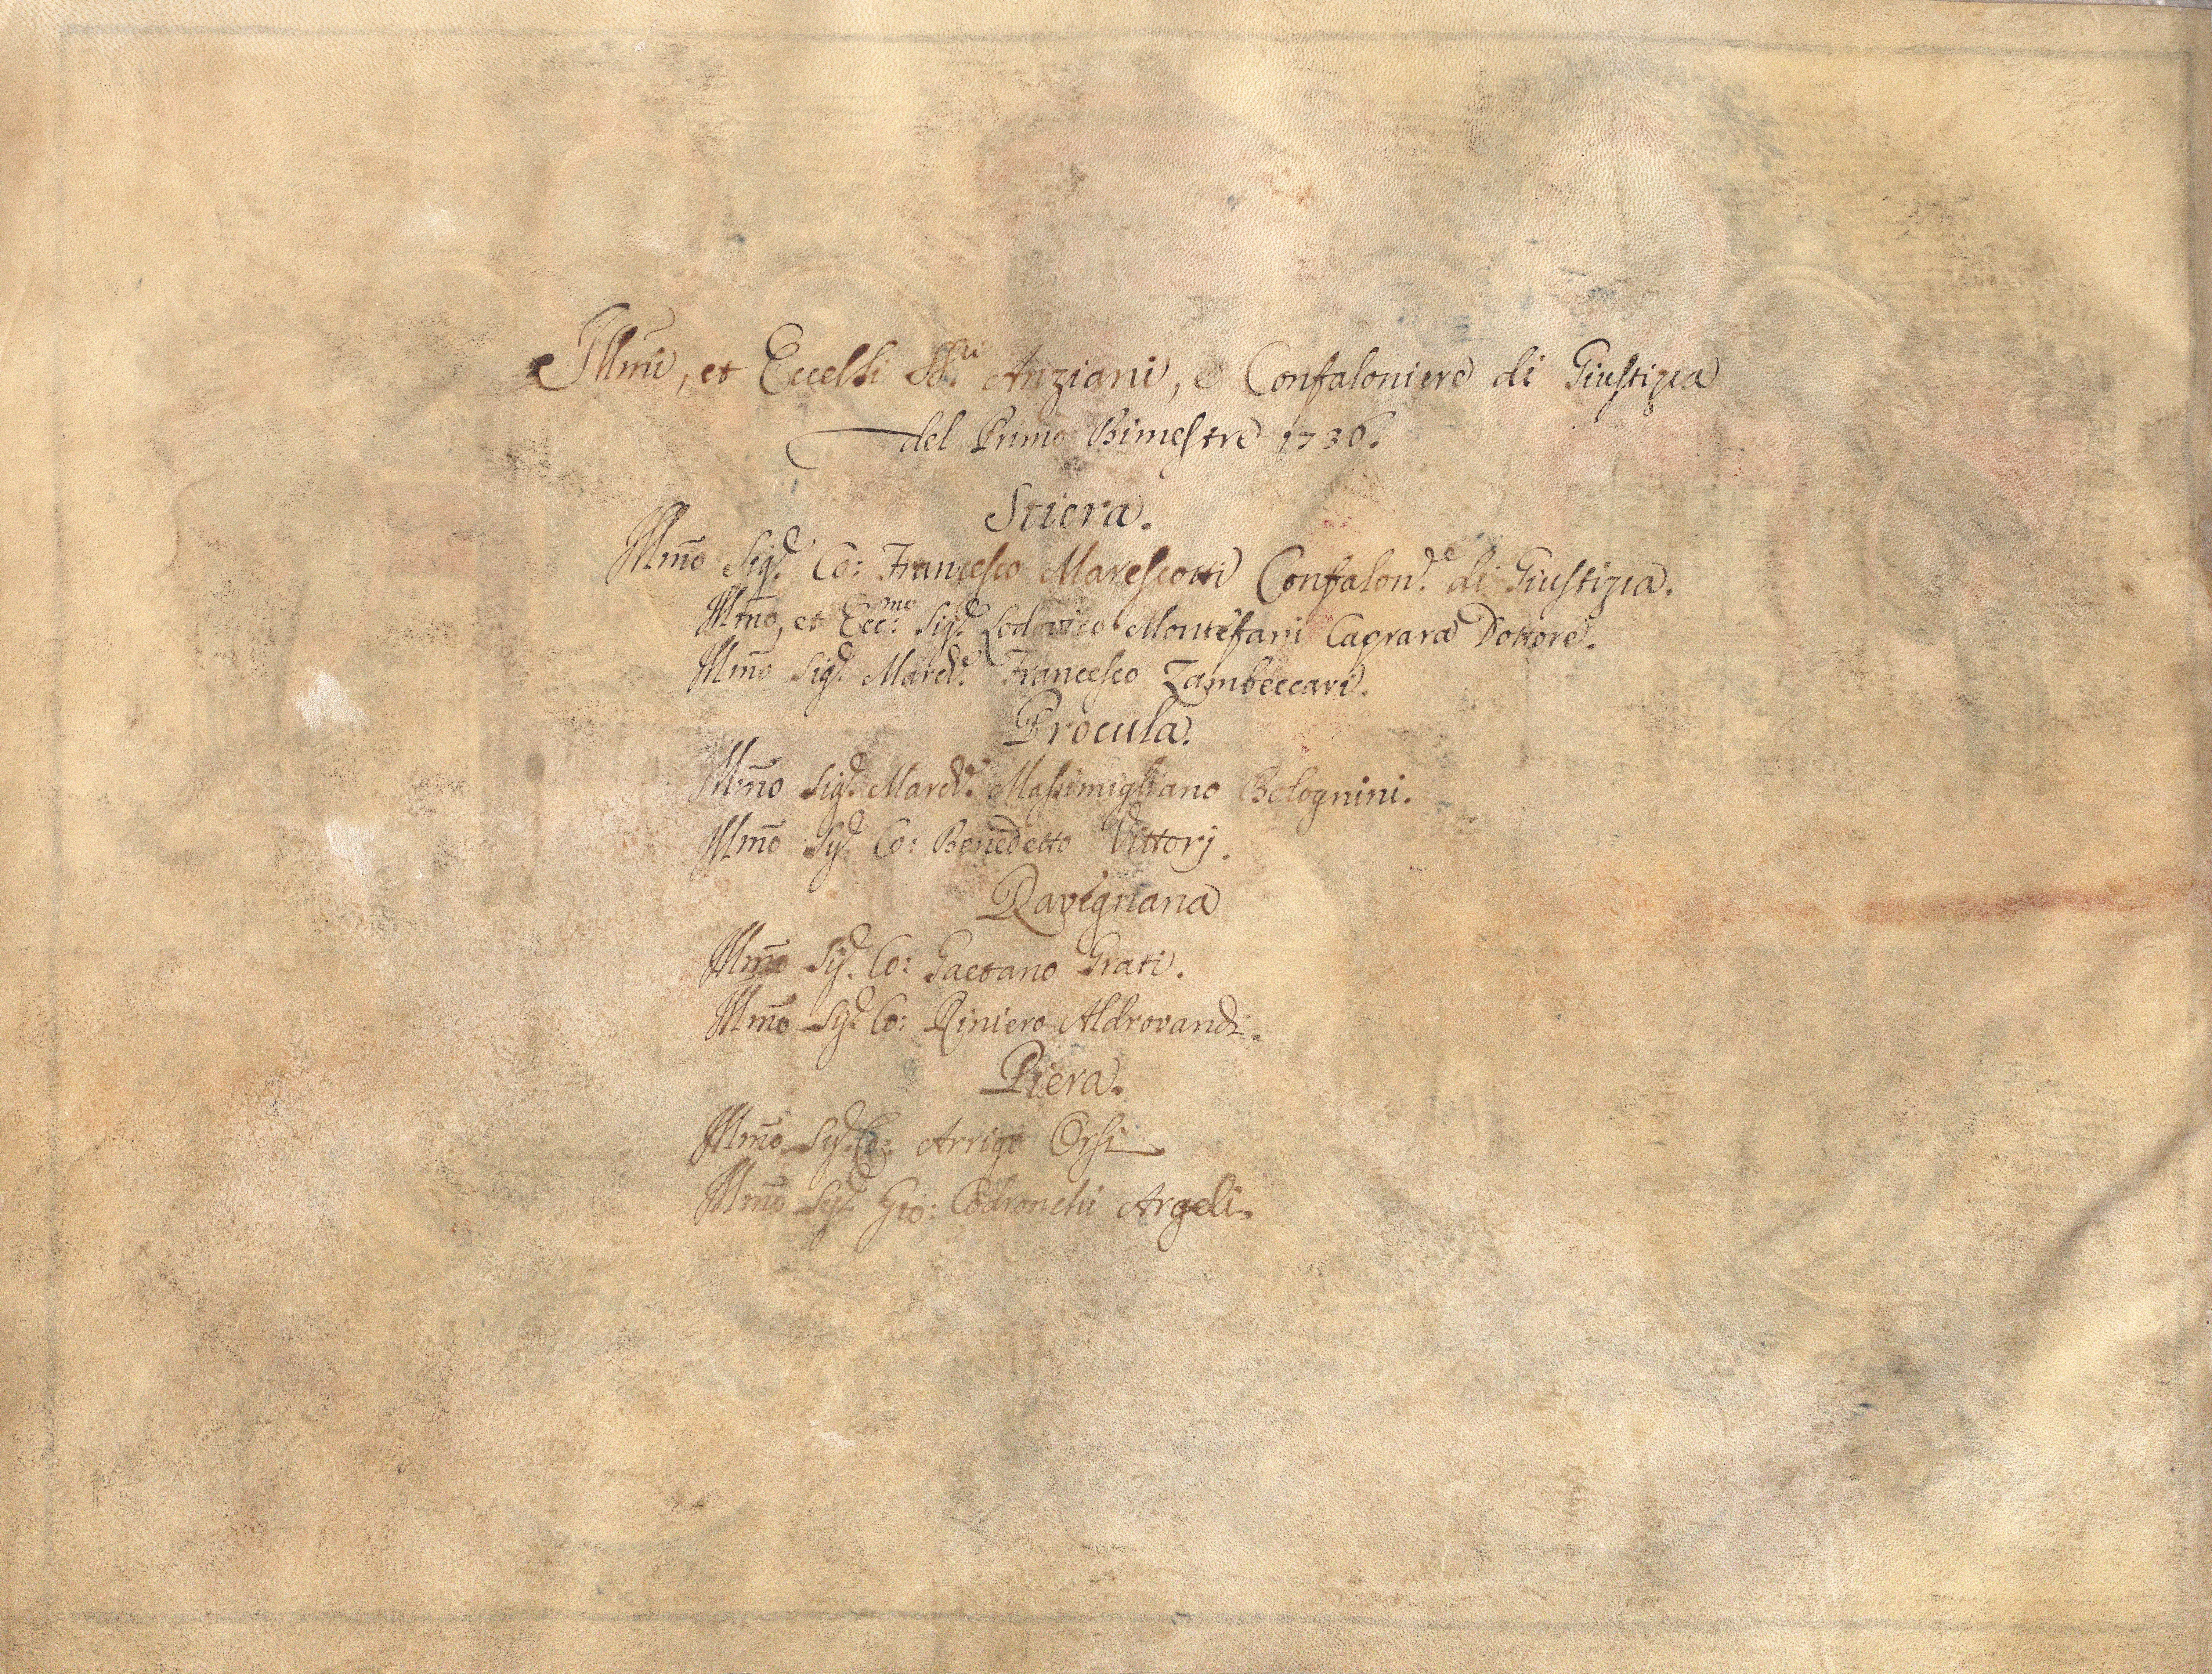 Illm̃i, et Eccelsi SS.ri Anziani, e Confaloniere di Giustizia
del Primo Bimestre 1736.
Stiera.
Illm̃o Sig.e Co: Francesco Marescotti Confalon.e di Giustizia.
Illm̃o, et Ecc.mo Sig.e Lodovico Montefani Caprara Dottore.
Illm̃o Sig.e March.e Francesco Zambeccari.
Procula.
Illm̃o Sig.e March.e Massimigliano Bolognini.
Illm̃o Sig.e Co: Benedetto Vittorj.
Ravegnana
Illm̃o Sig.e Co: Gaetano Grati.
Illm̃o Sig.e Co: Riniero Aldrovandi.
Piera.
Illm̃o Sig.e Co: Arrigo Orsi
Illm̃o Sig.e Gio: Codronchi Argeli